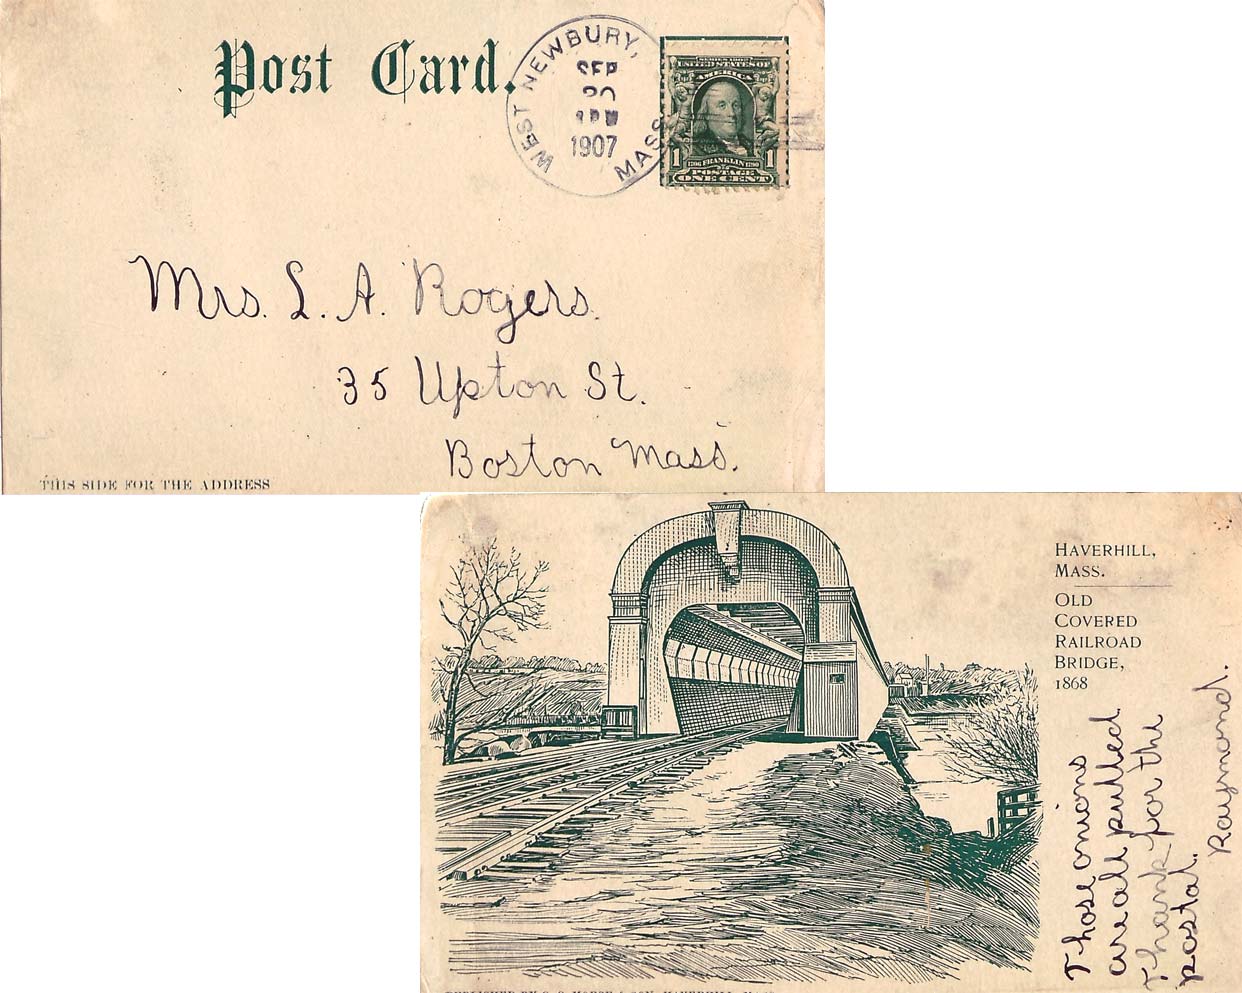 Post Card.
WEST NEWBURY,
MASS
SEP
1907
SERIES 1902
UNITED STATES OF
AMERICA
1706 FRANKLIN 1790
1 POSTAGE 1
ONE CENT
Mrs. L. A. Rogers.
35 Upton St.
Boston Mass.
THIS SIDE FOR THE ADDRESS
HAVERHILL,
MASS.
OLD
COVERED
RAILROAD
BRIDGE,
1868
Those onions
are all pulled
Thank for the
postal.
Raymond.